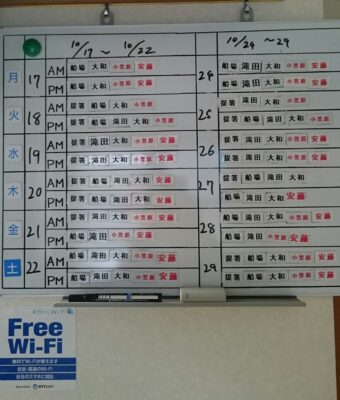 10/17 ～ 10/22
10/24 ～ 29
月 17 AM 船場 大和 小笠原 安藤
PM 船場 大和 小笠原 安藤
火 18 AM 提箸 船場 大和 小笠原
PM 提箸 船場 滝田 大和 小笠原
水 19 AM 提箸 滝田 大和 小笠原 安藤
PM 提箸 滝田 大和 小笠原 安藤
木 20 AM 提箸 船場 滝田 大和 安藤
PM 提箸 船場 滝田 大和 安藤
金 21 AM 提箸 滝田 大和 小笠原 安藤
PM 船場 滝田 小笠原 安藤
土 22 AM 提箸 船場 大和 小笠原 安藤
PM 提箸 滝田 大和 小笠原 安藤
24 船場 滝田 大和 小笠原 安藤
船場 滝田 大和 小笠原 安藤
25 提箸 船場 大和 小笠原
提箸 滝田 大和 小笠原
26 提箸 滝田 大和 小笠原 安藤
提箸 滝田 大和 小笠原 安藤
27 提箸 船場 滝田 大和
船場 滝田 大和 安藤
28 船場 滝田 大和 小笠原 安藤
船場 滝田 小笠原 安藤
29 提箸 船場 大和 小笠原 安藤
提箸 船場 大和 小笠原 安藤
Free
Wi-Fi
無料でWi-Fiが使えます
安全・高速のWi-Fi
各社のスマホに対応